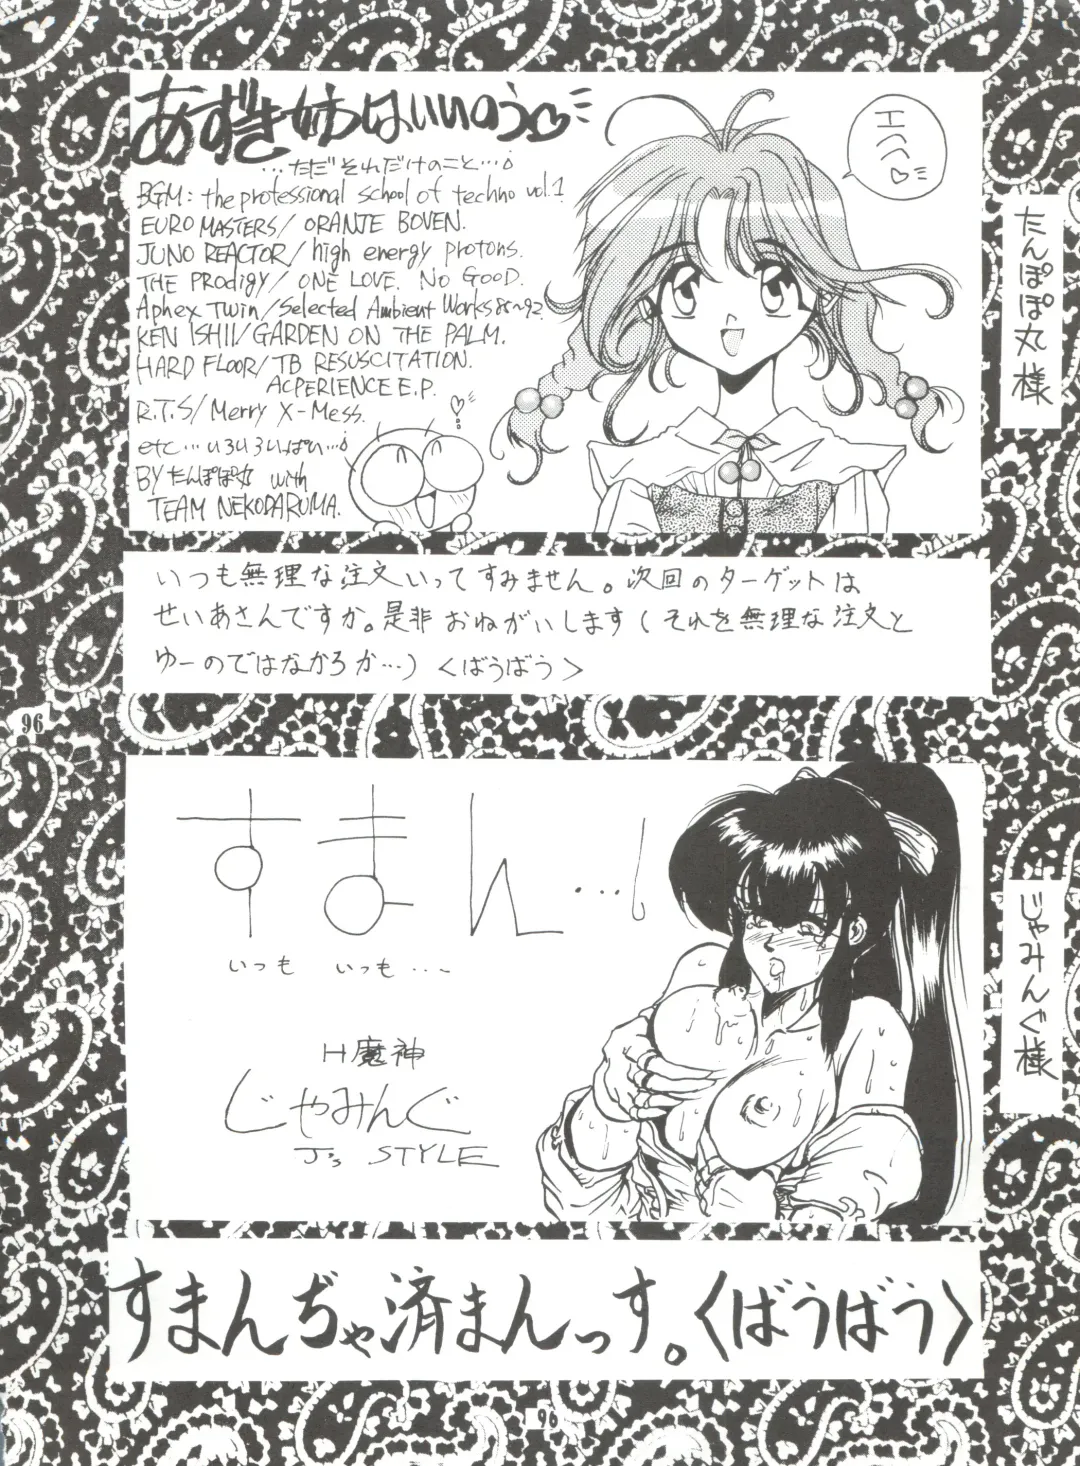 あずき姉はいいのう♡
…ただそれだけのこと…♪
BGM: the professional school of techno vol.1
EURO MASTERS/ ORANJE BOVEN.
JUNO REACTOR/ high energy protons.
THE PRODIGY/ ONE LOVE. NO GOOD.
Aphex Twin/Selected Ambient Works 85~92.
KEN ISHII/GARDEN ON THE PALM.
HARD FLOOR/ TB RESUSCITATION.
ACPERIENCE E.P.
R.T.S/ Merry X-Mess.
etc… いろいろいっぱい…♪
BY たんぽぽ丸 with
TEAM NEKODARUMA.
エヘヘ♡
たんぽぽ丸様
いつも無理な注文いってすみません。次回のターゲットは
せいあさんですか。是非おねがいします(それを無理な注文と
ゆーのではなかろか…)〈ばうばう〉
96
すまん…!
いつも いつも…
H魔神
じゃみんぐ
J's STYLE
じゃみんぐ様
すまんぢゃ済まんっす。〈ばうばう〉
96